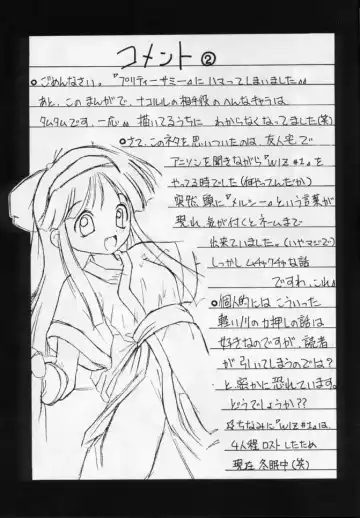 コメント②
●ごめんなさい。『プリティーサミー』にハマってしまいました。
あと、このまんがで、ナコルルの相手役のへんなキャラは
タムタムです、一応。描いてるうちに わからなくなってました(笑)
●さて、このネタを思いついたのは、友人宅で
アニソンを聞きながら『WIZ#1』を
やってる時でした(何やってんだか)
突然、頭に『メルシー』という言葉が
現れ 気が付くとネームまで
出来ていました。(いやマジで)
しっかし ムチャクチャな話
ですわ、これ。
●個人的には こういった
軽い川のカ押しの話は
好きなのですが、読者
が引いてしまうのでは?
と、密かに恐れています。
どうでしょうか??
ちなみに『WIZ#1』は
4人程ロストしたため
現在 冬眠中(笑)